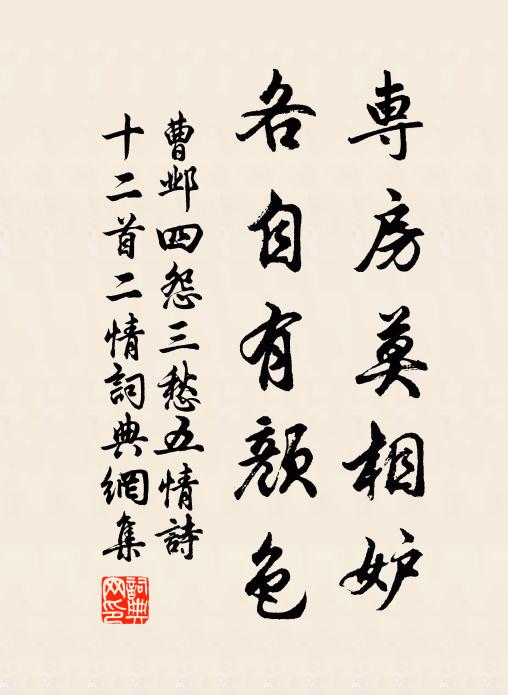 専房莫相妒
各自有顏色
曹邺四怨三愁五情詩
十二首二情詞典網集
詞典
网印